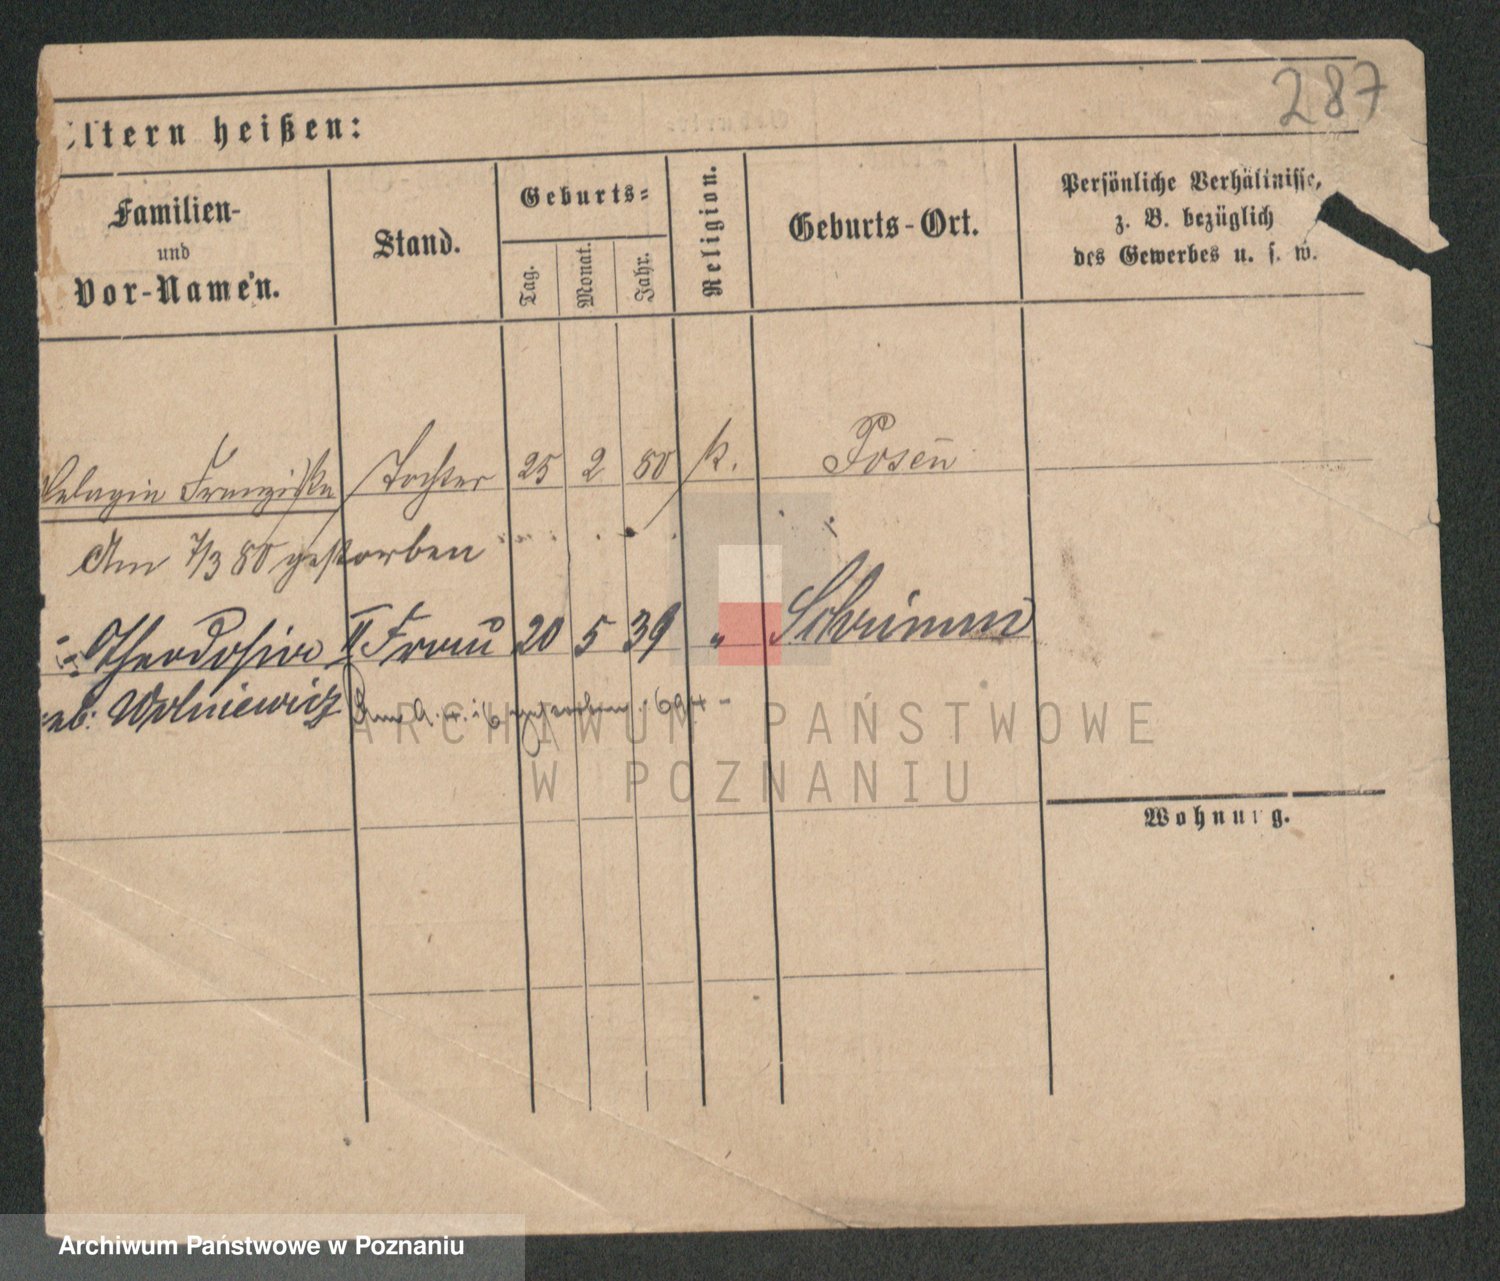 287
Eltern heißen:
Familien-
und
Vor-Namen.
Stand.
Geburts-
Tag.
Monat.
Jahr.
Religion.
Geburts-Ort.
Persönliche Verhältnisse,
z. B. bezüglich
des Gewerbes u. s. w.
Pelagia Franziska Tochter 25 2 80 k. Posen
Am 7/3 80 gestorben
Theodosia II Frau 20 5 39 " Schrimm
geb. Wolniewicz
gestorben
ARCHIWUM PAŃSTWOWE
W POZNANIU
Wohnung.
Archiwum Państwowe w Poznaniu